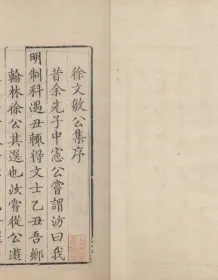 徐文敏公集序
昔余先子中憲公嘗謂汸曰我
明制科遇丑輒得文士乙丑吾鄉
翰林徐公其選也汝嘗從公遊